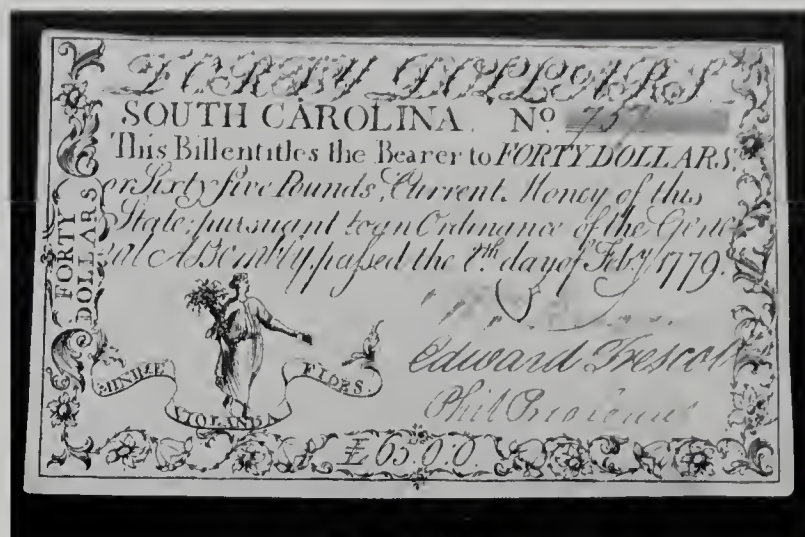 FORTY DOLLARS
SOUTH CAROLINA. Nº 757
This Bill entitles the Bearer to FORTY DOLLARS,
or Sixty five Pounds, Current Money of this
State; pursuant to an Ordinance of the Gene
ral Assembly, passed the 8th. day of Feby. 1779.
FORTY
DOLLARS
MINIME
VIOLANDA
FLORS
Edward Trescot
Phil Prioleau
£65.0.0